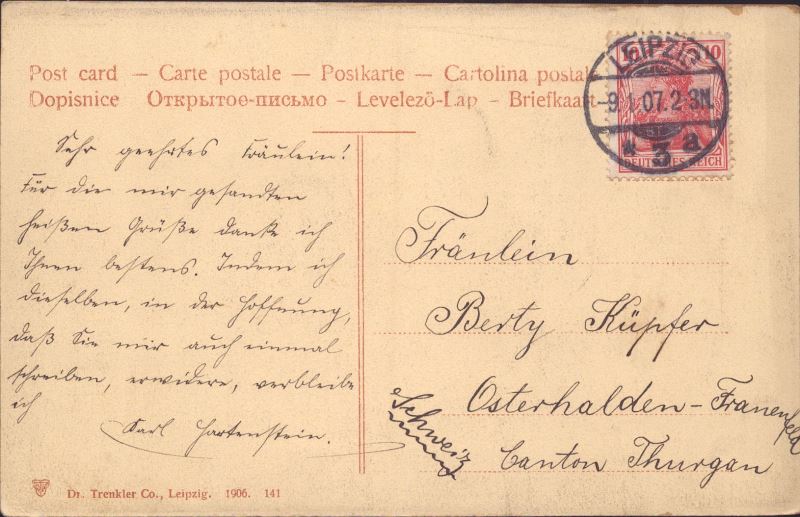 Post card — Carte postale — Postkarte — Cartolina postal
Dopisnice Открытое-письмо – Levelező-Lap – Briefkaart
10 10
DEUTSCHES REICH
LEIPZIG
-9.1.07.2-3N.
* 3 a
Sehr geehrtes Fräulein!
Für die mir gesandten
heißen Grüße danke ich
Ihnen bestens. Indem ich
dieselben, in der Hoffnung,
daß Sie mir auch einmal
schreiben, erwidere, verbleibe
ich
Karl Hartenstein.
Fräulein
Berty Küpfer
Osterhalden-Frauenfeld
Canton Thurgau
Schweiz
Dr. Trenkler Co., Leipzig. 1906. 141